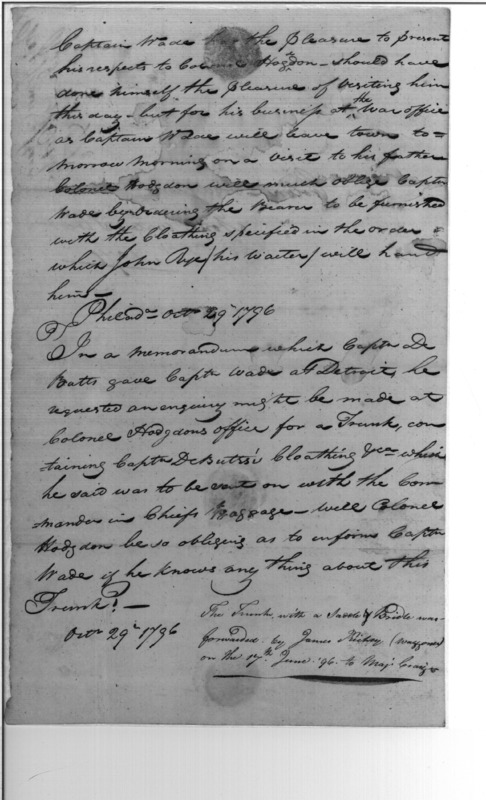 Captain Wade has the Pleasure to present
his respects to Colonel Hogdon - should have
done himself the pleasure of Visiting him
this day - but for his business at the War office
as Captain Wade will leave town to=
morrow morning on a visit to his father
Colonel Hodgdon will much oblige Captn
Wade by Ordering the Bearer to be furnished
with the Cloathing specified in the order
which John Rye / his Waiter / will hand
him -
Philada Octr 29th 1796
In a memorandum which Captn De
Butts gave Captn Wade at Detroit, he
requested an enquiry might be made at
Colonel Hodgdons office for a Trunk, con
taining Captn DeButts's Cloathing &ca which
he said was to be sent on with the Com
mander in Chiefs Baggage - Will Colonel
Hodgdon be so obliging as to inform Captn
Wade if he knows any thing about this
Trunk? -
Octr 29th 1796
The Trunk, with a Saddle & Bridle was
forwarded by James (Waggoner)
on the 17th June '96 to Majr Craig